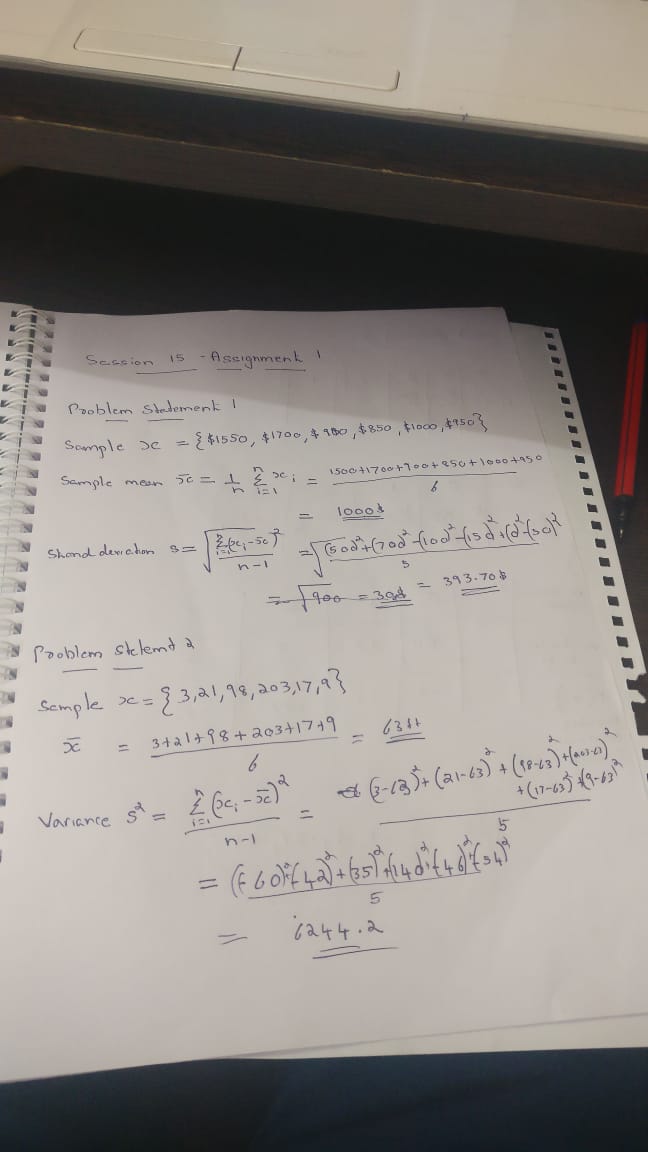 Session 15 - Assignment 1
Problem Statement 1
Sample x = {$1550, $1700, $ 900, $850, $1000, $950}
Sample mean x̄ = 1/n Σ(i=1 to n) xi = 1500+1700+900+850+1000+950 / 6
= 1000$
Stand deviation s = √(Σ(i=1 to n)(xi-x̄)² / n-1) = √((500)²+(700)²-(100)²-(150)²+(0)²-(50)² / 5)
= 393.70$
Problem Stetemt 2
Sample x = {3,21,98,203,17,9}
x̄ = 3+21+98+203+17+9 / 6 = 63
Variance s² = Σ(i=1 to n)(xi-x̄)² / n-1 = (3-63)²+(21-63)²+(98-63)²+(203-63)²+(17-63)²+(9-63)² / 5
= (-60)²+(-42)²+(35)²+(140)²+(-46)²+(-54)² / 5
= 6244.2